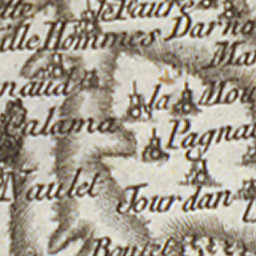 le Faure
ille Hommes Darna
naud la Mou
Calama Pagna
Naulet Jourdan